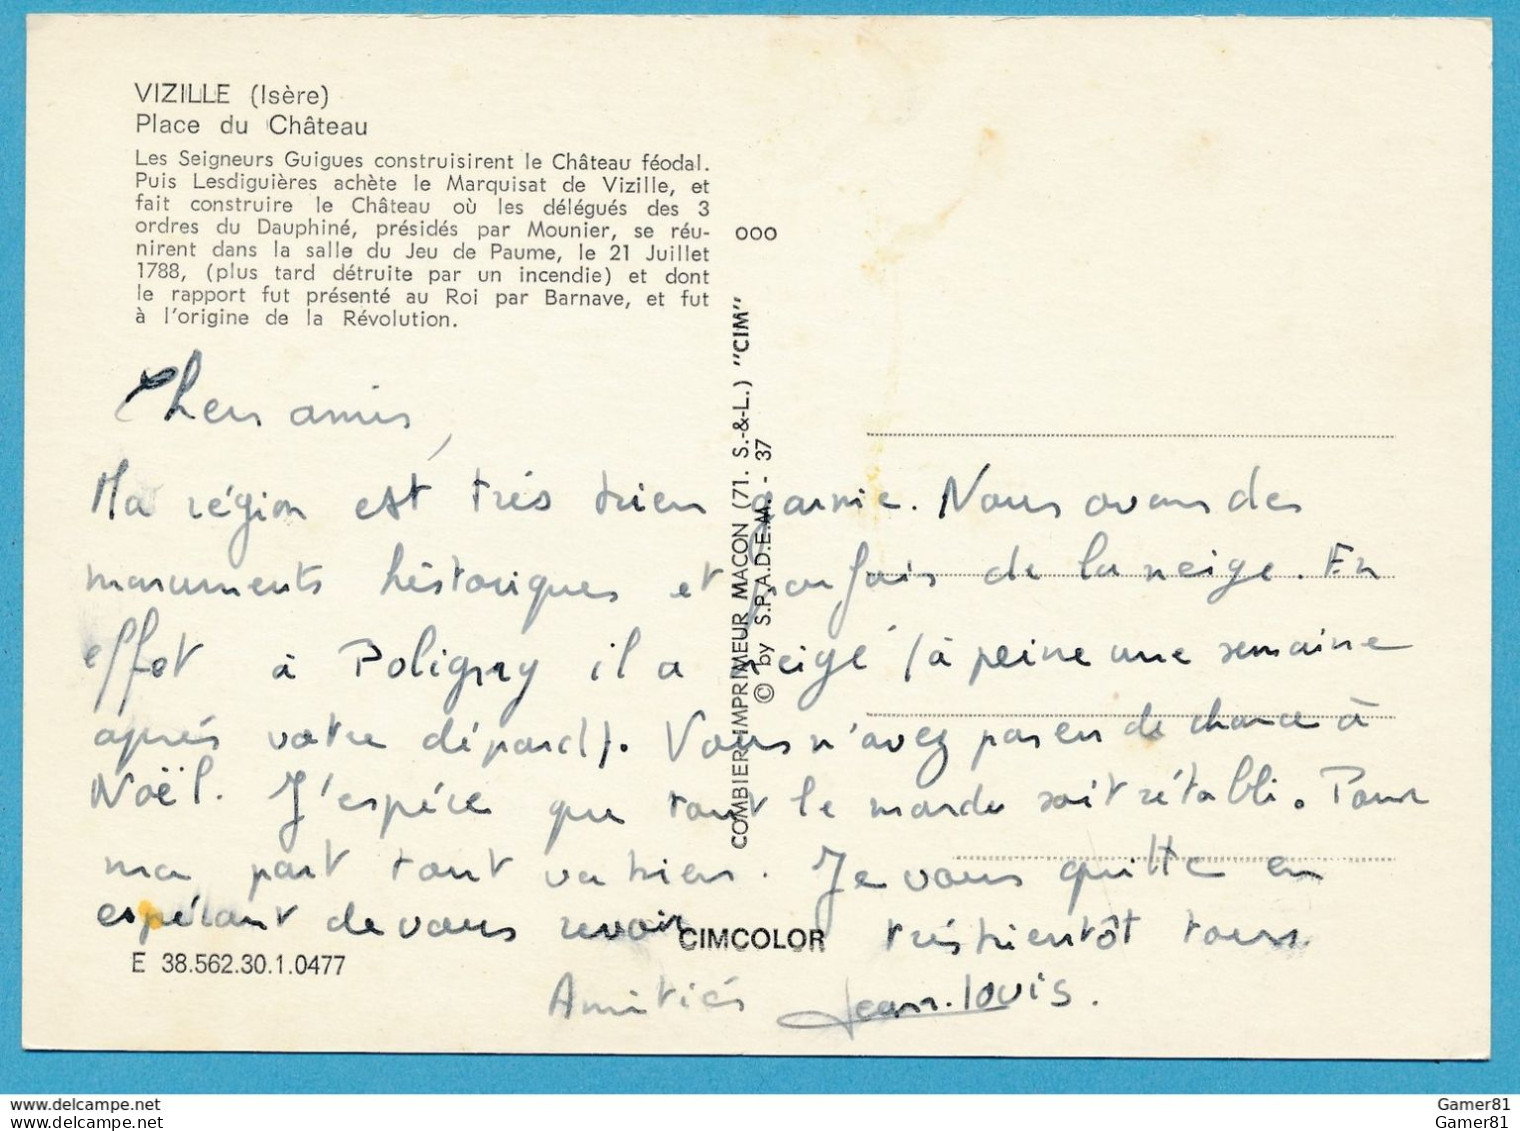 VIZILLE (Isère)
Place du Château
Les Seigneurs Guigues construisirent le Château féodal.
Puis Lesdiguières achète le Marquisat de Vizille, et
fait construire le Château où les délégués des 3
ordres du Dauphiné, présidés par Mounier, se réu-
nirent dans la salle du Jeu de Paume, le 21 Juillet
1788, (plus tard détruite par un incendie) et dont
le rapport fut présenté au Roi par Barnave, et fut
à l'origine de la Révolution.
ooo
COMBIER IMPRIMEUR MACON (71. S.-&-L.) "CIM"
© by S.P.A.D.E.M. - 37
Chers amis,
Ma région est très bien garnie. Nous avons des
monuments historiques et parfois de la neige. En
effet à Poligny il a neigé (à peine une semaine
après votre départ). Vous n'avez pas eu de chance à
Noël. J'espère que tout le monde soit rétabli. Pour
ma part tout va bien. Je vous quitte en
espérant de vous revoir très bientôt tous.
CIMCOLOR
E 38.562.30.1.0477
Amitiés Jean-Louis.
Gamer81
Gamer81
Gamer81
Gamer81